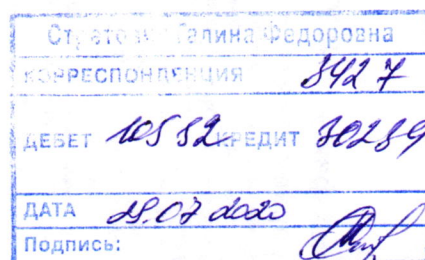 Галина Федоровна
КОРРЕСПОНДЕНЦИЯ 8427
ДЕБЕТ 10532 КРЕДИТ 30289
ДАТА 29.07 2020
Подпись: